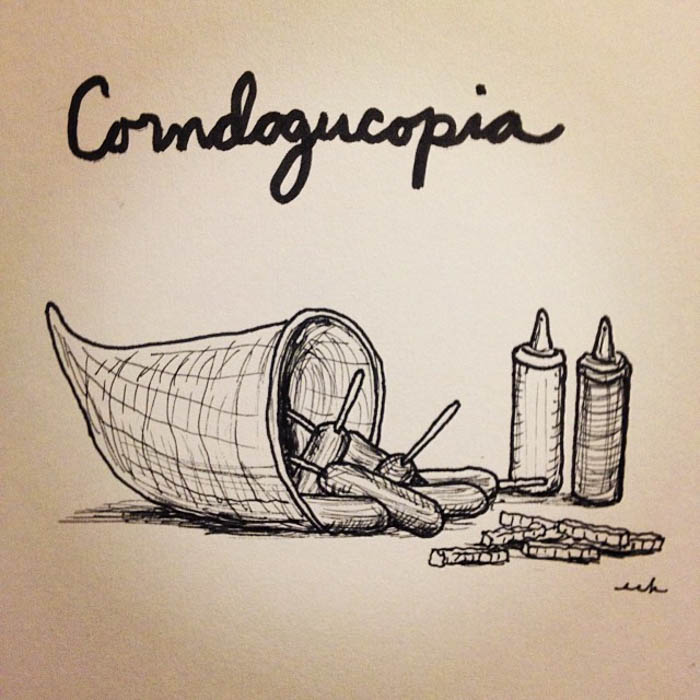 Corndogucopia
eek